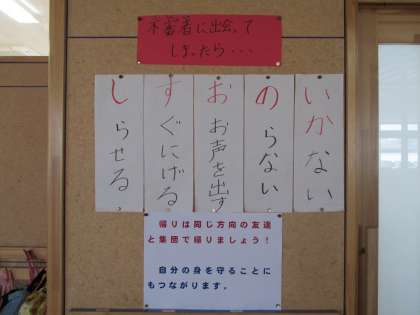 不審者に出会って
しまったら・・・
いかない
のらない
おお声を出す
すぐにげる
しらせる
帰りは同じ方向の友達
と集団で帰りましょう！
自分の身を守ることに
もつながります。